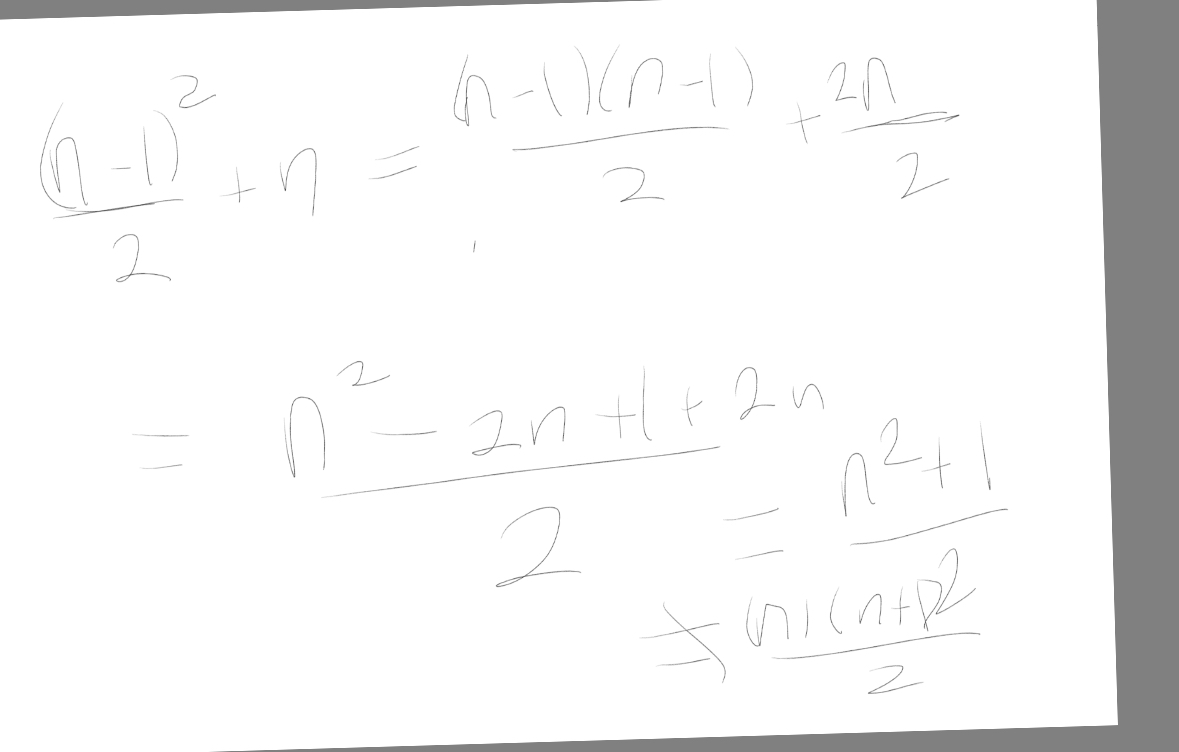 (n-1)²/2 + n = (n-1)(n-1)/2 + 2n/2
= n² - 2n + 1 + 2n/2 = n² + 1/2
≠ (n)(n+1)2/2